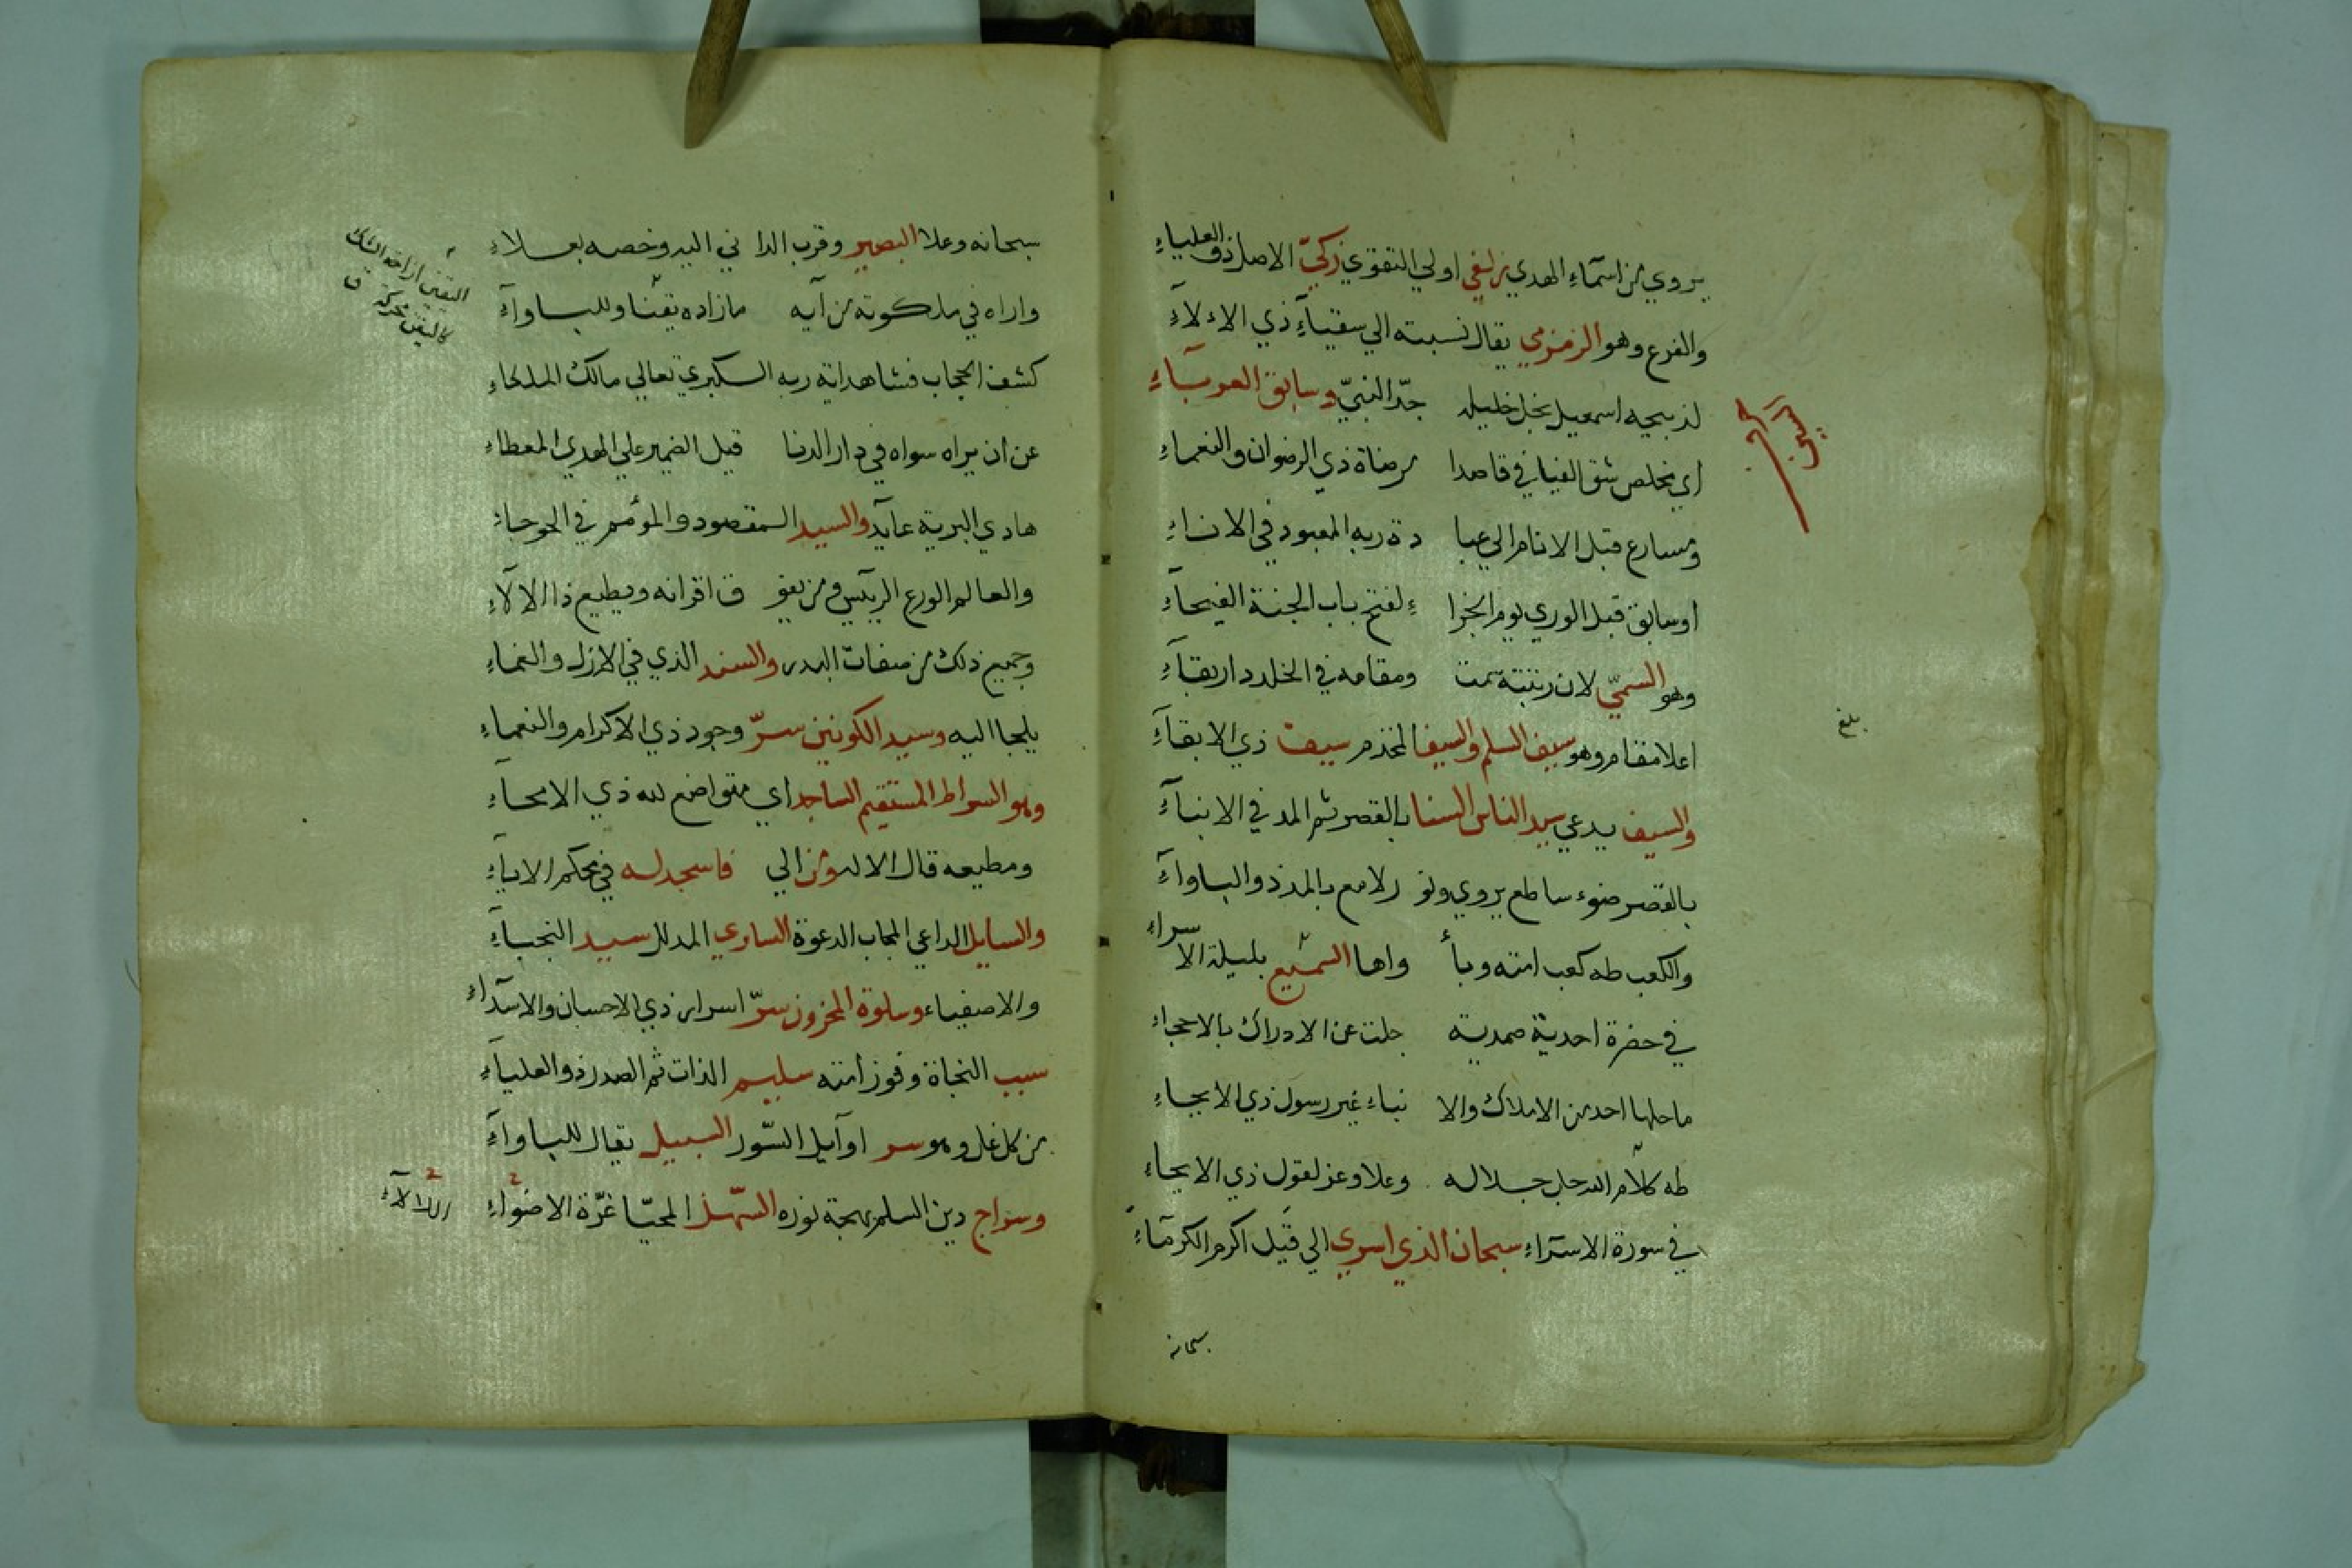 يروي من اسمآء الهدي زلفي اولي التقوي زكيّ الاصل ذو العلياء
والفرع وهو الزمزمي يقال نسبته الي سقيآء ذي الاءلآء
لذبيحه اسمعيل نجل خليله جدّ النبيّ وسابق العربآء
اي مخلص شق الفيافي قاصدا مرضاة ذي الرضوان والنعماء
ومسارع قبل الانام الي عبا دة ربه المعبود في الاناء
او سابق قبل الوري يوم الجزا ء لفتح باب الجنة الفيحاء
وهو السميّ لان رتبته سمت ومقامه في الخلد دار بقآء
اعلا مقام وهو سيف السلم والسيف المخذم سيف ذي الابقآء
والسيف يدعي سيد الناس السنا بالقصر ثم المد في الانبآء
بالقصر ضوء ساطع يروي ونو ر لامع بالمد ذو الباوآء
والكعب طه كعب امته وبأ واها السميع بليلة الاسراء
في حضرة احدية صمدية جلت عن الادراك بالاحجاء
ما حلها احد من الاملاك والا نباء غير رسول ذي الايجاء
طه كلام الله جل جلاله وعلا وعز لقول ذي الايحاء
في سورة الاسرآء سبحان الذي اسري الي قيل اكرم الكرمآء
سبحانه
السين
بلغ
سبحانه وعلا البصير وقرب الدا ني اليه وخصه بعلاء
واراه في ملكوته من آيه ما زاده يقنا وللباوآء
كشف الحجاب فشاهد اية ربه الكبري تعالي مالك الملكاء
عن ان يراه سواه في دار الدنا قيل الضمير علي الهدي المعطاء
هادي البرية عآيد والسيد المقصود والمؤمم في الحوجاء
والعالم الورع الريئس ومن يفو ق اقرانه ومطيع ذا الالآء
وجميع ذلك من صفات البدر والسند الذي في الازل والغماء
يلجا اليه وسيد الكونين سرّ وجود ذي الاكرام والنعماء
وهو السراط المستقيم الساجد اي متواضع لله ذي الامحاء
ومطيعه قال الاله ومن الي فاسجد له في محكم الايآء
والسايل الداعي المجاب الدعوة الساري المدلل سيد النجبآء
والاصفياء وسلوة المحزون سرّ اسرار ذي الاحسان والاسدآء
سبب النجاة وفوز امته سليم الذات ثم الصدر ذو العليآء
من كل غل وهو سر اوآيل السّور السبيل يقال للباوآء
وسراج دين السلم بهجة نوره السّهل المحيّا غرّة الاضوآء
اليقن ازاحة الشك
كاليقن محركة ق
اللألآء